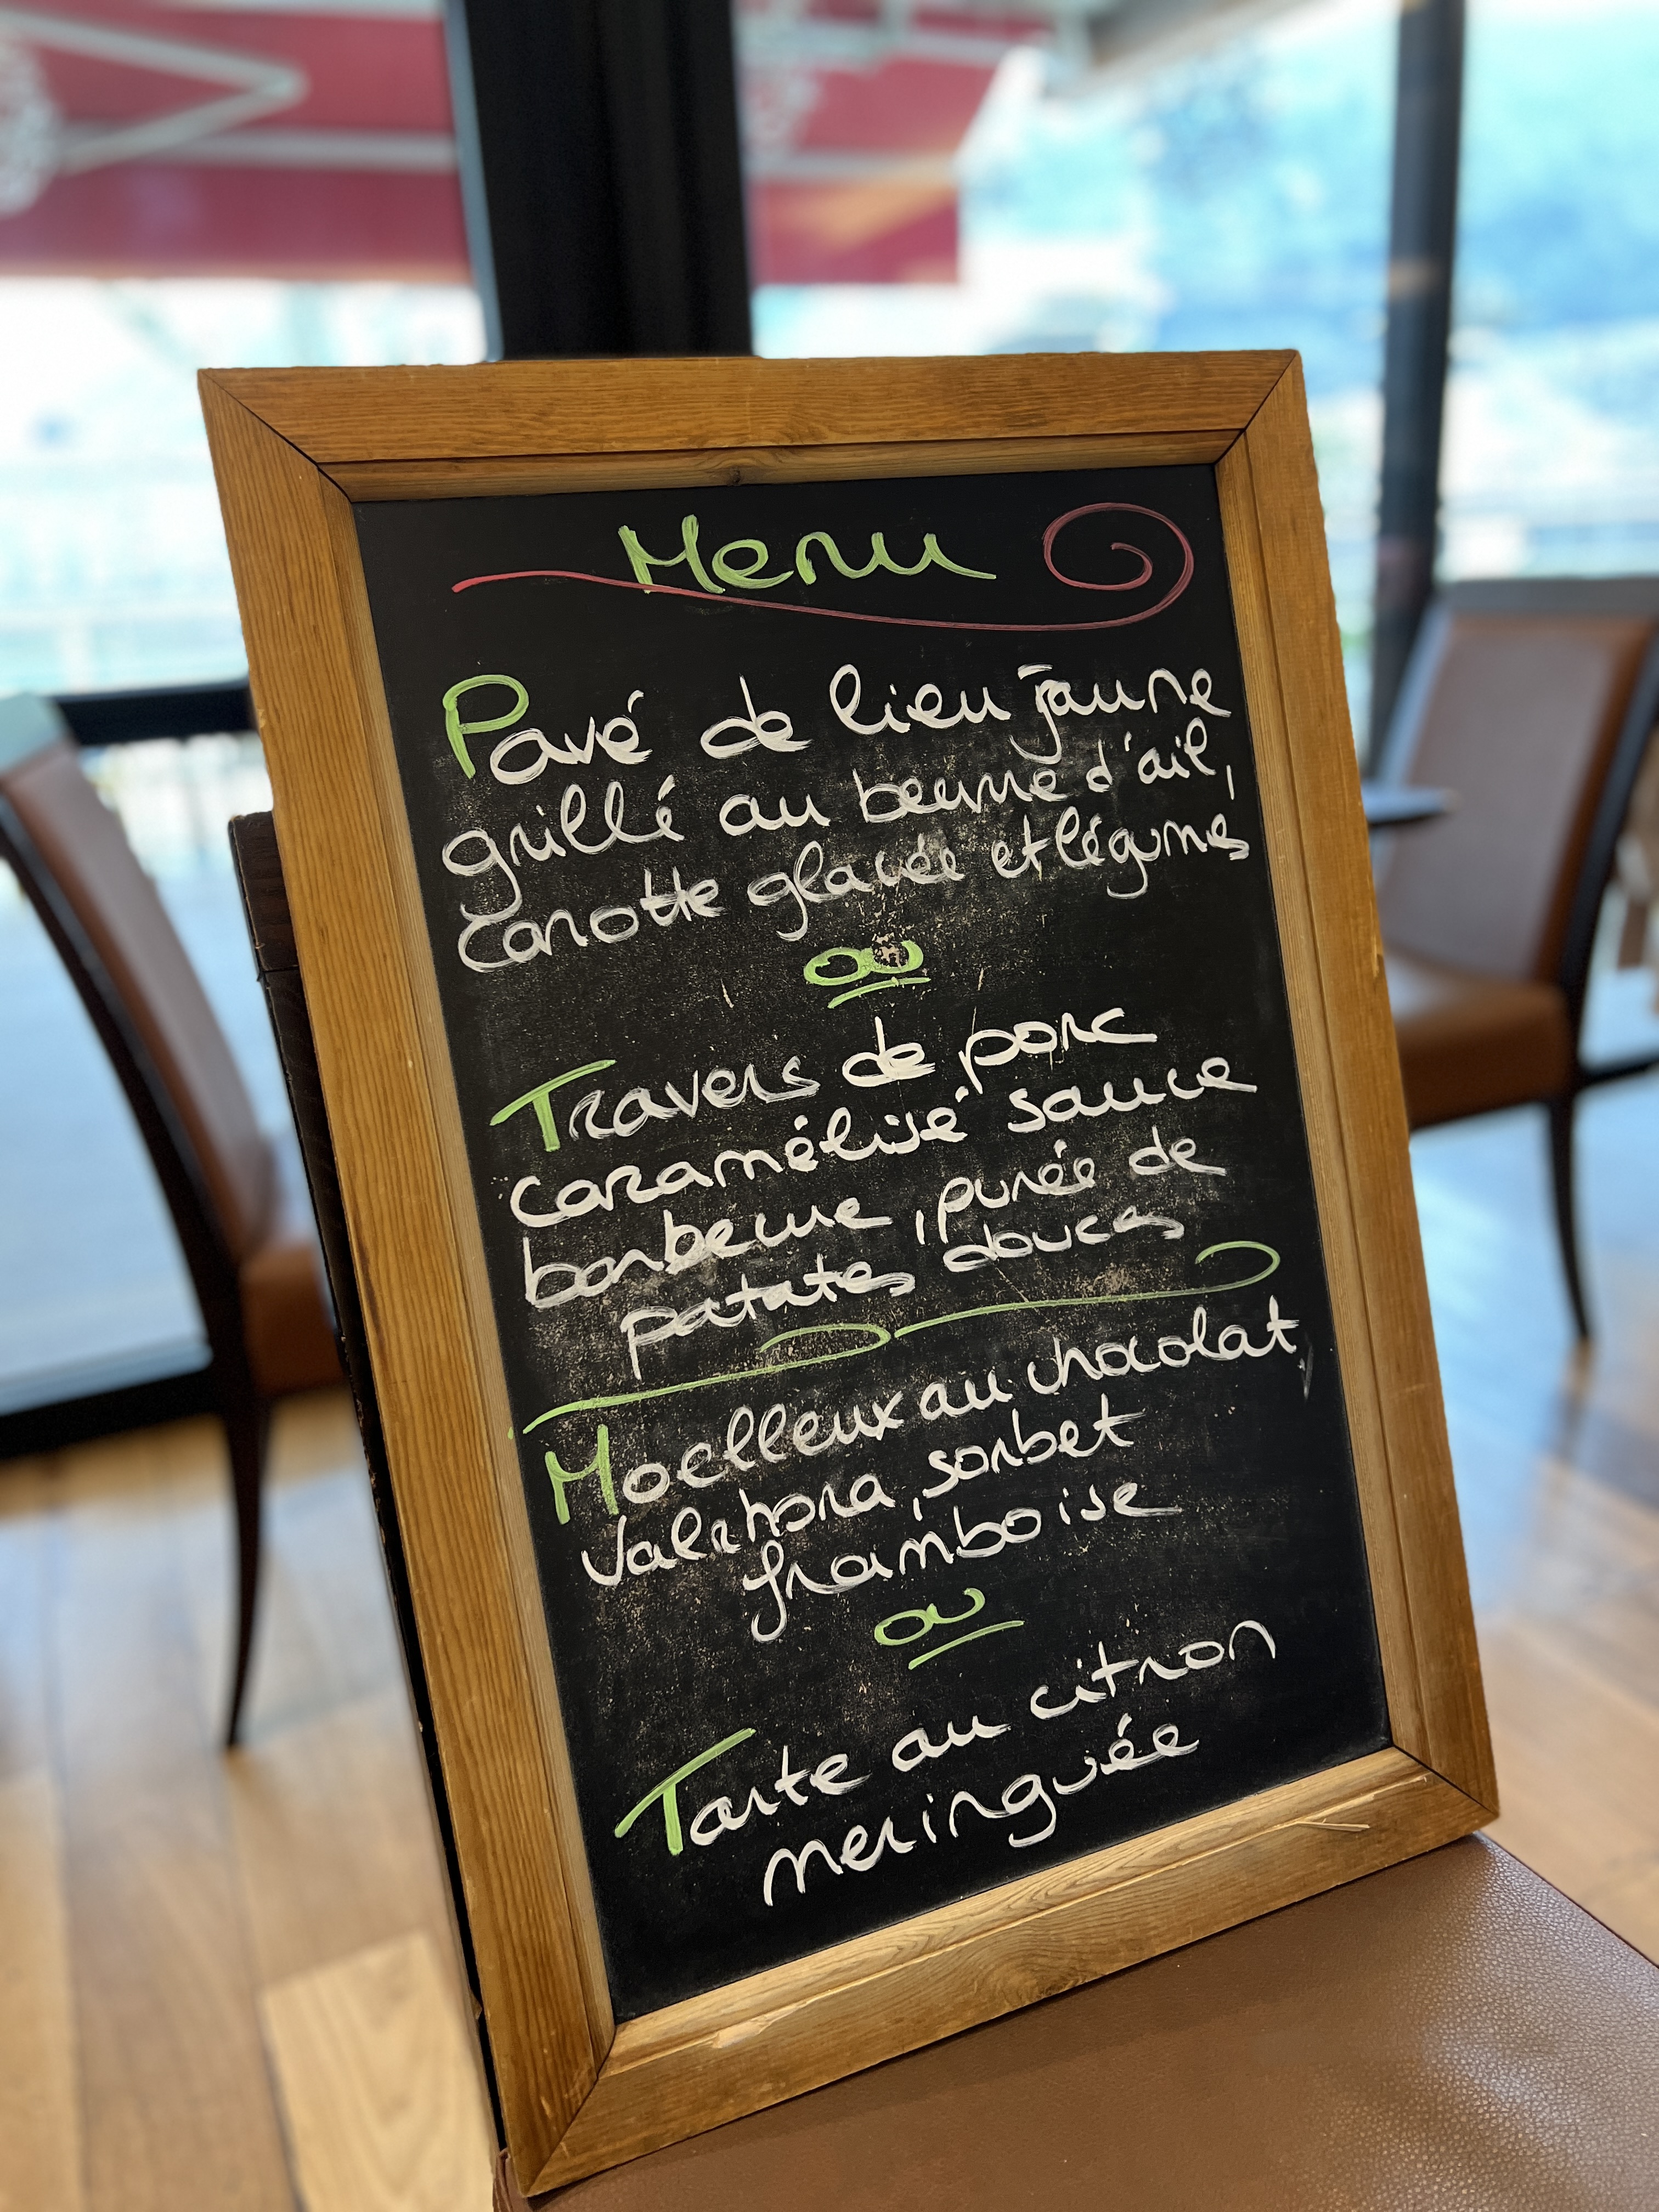 Menu
Pavé de lieu jaune
grillé au beurre d'ail,
carotte glacée et légumes
ou
Travers de porc
caramélisé sauce
barbecue, purée de
patates douces
Moelleux au chocolat
Valrhona, sorbet
framboise
ou
Tarte au citron
meringuée